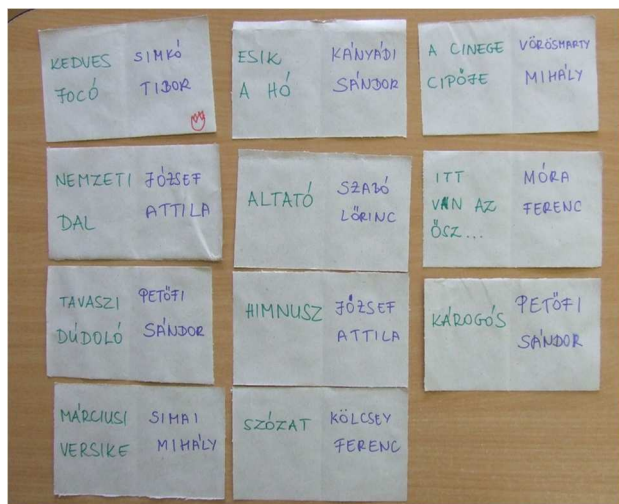 KEDVES
JOCÓ
SIMKÓ
TIBOR
ESIK
A HÓ
KÁNYÁDI
SÁNDOR
A CINEGE
CIPŐJE
VÖRÖSMARTY
MIHÁLY
NEMZETI
DAL
JÓZSEF
ATTILA
ALTATÓ
SZABÓ
LŐRINC
ITT
VAN AZ
ŐSZ...
MÓRA
FERENC
TAVASZI
DÚDOLÓ
PETŐFI
SÁNDOR
HIMNUSZ
JÓZSEF
ATTILA
KÁROGÓS
PETŐFI
SÁNDOR
MÁRCIUSI
VERSIKE
SIMAI
MIHÁLY
SZÓZAT
KÖLCSEY
FERENC